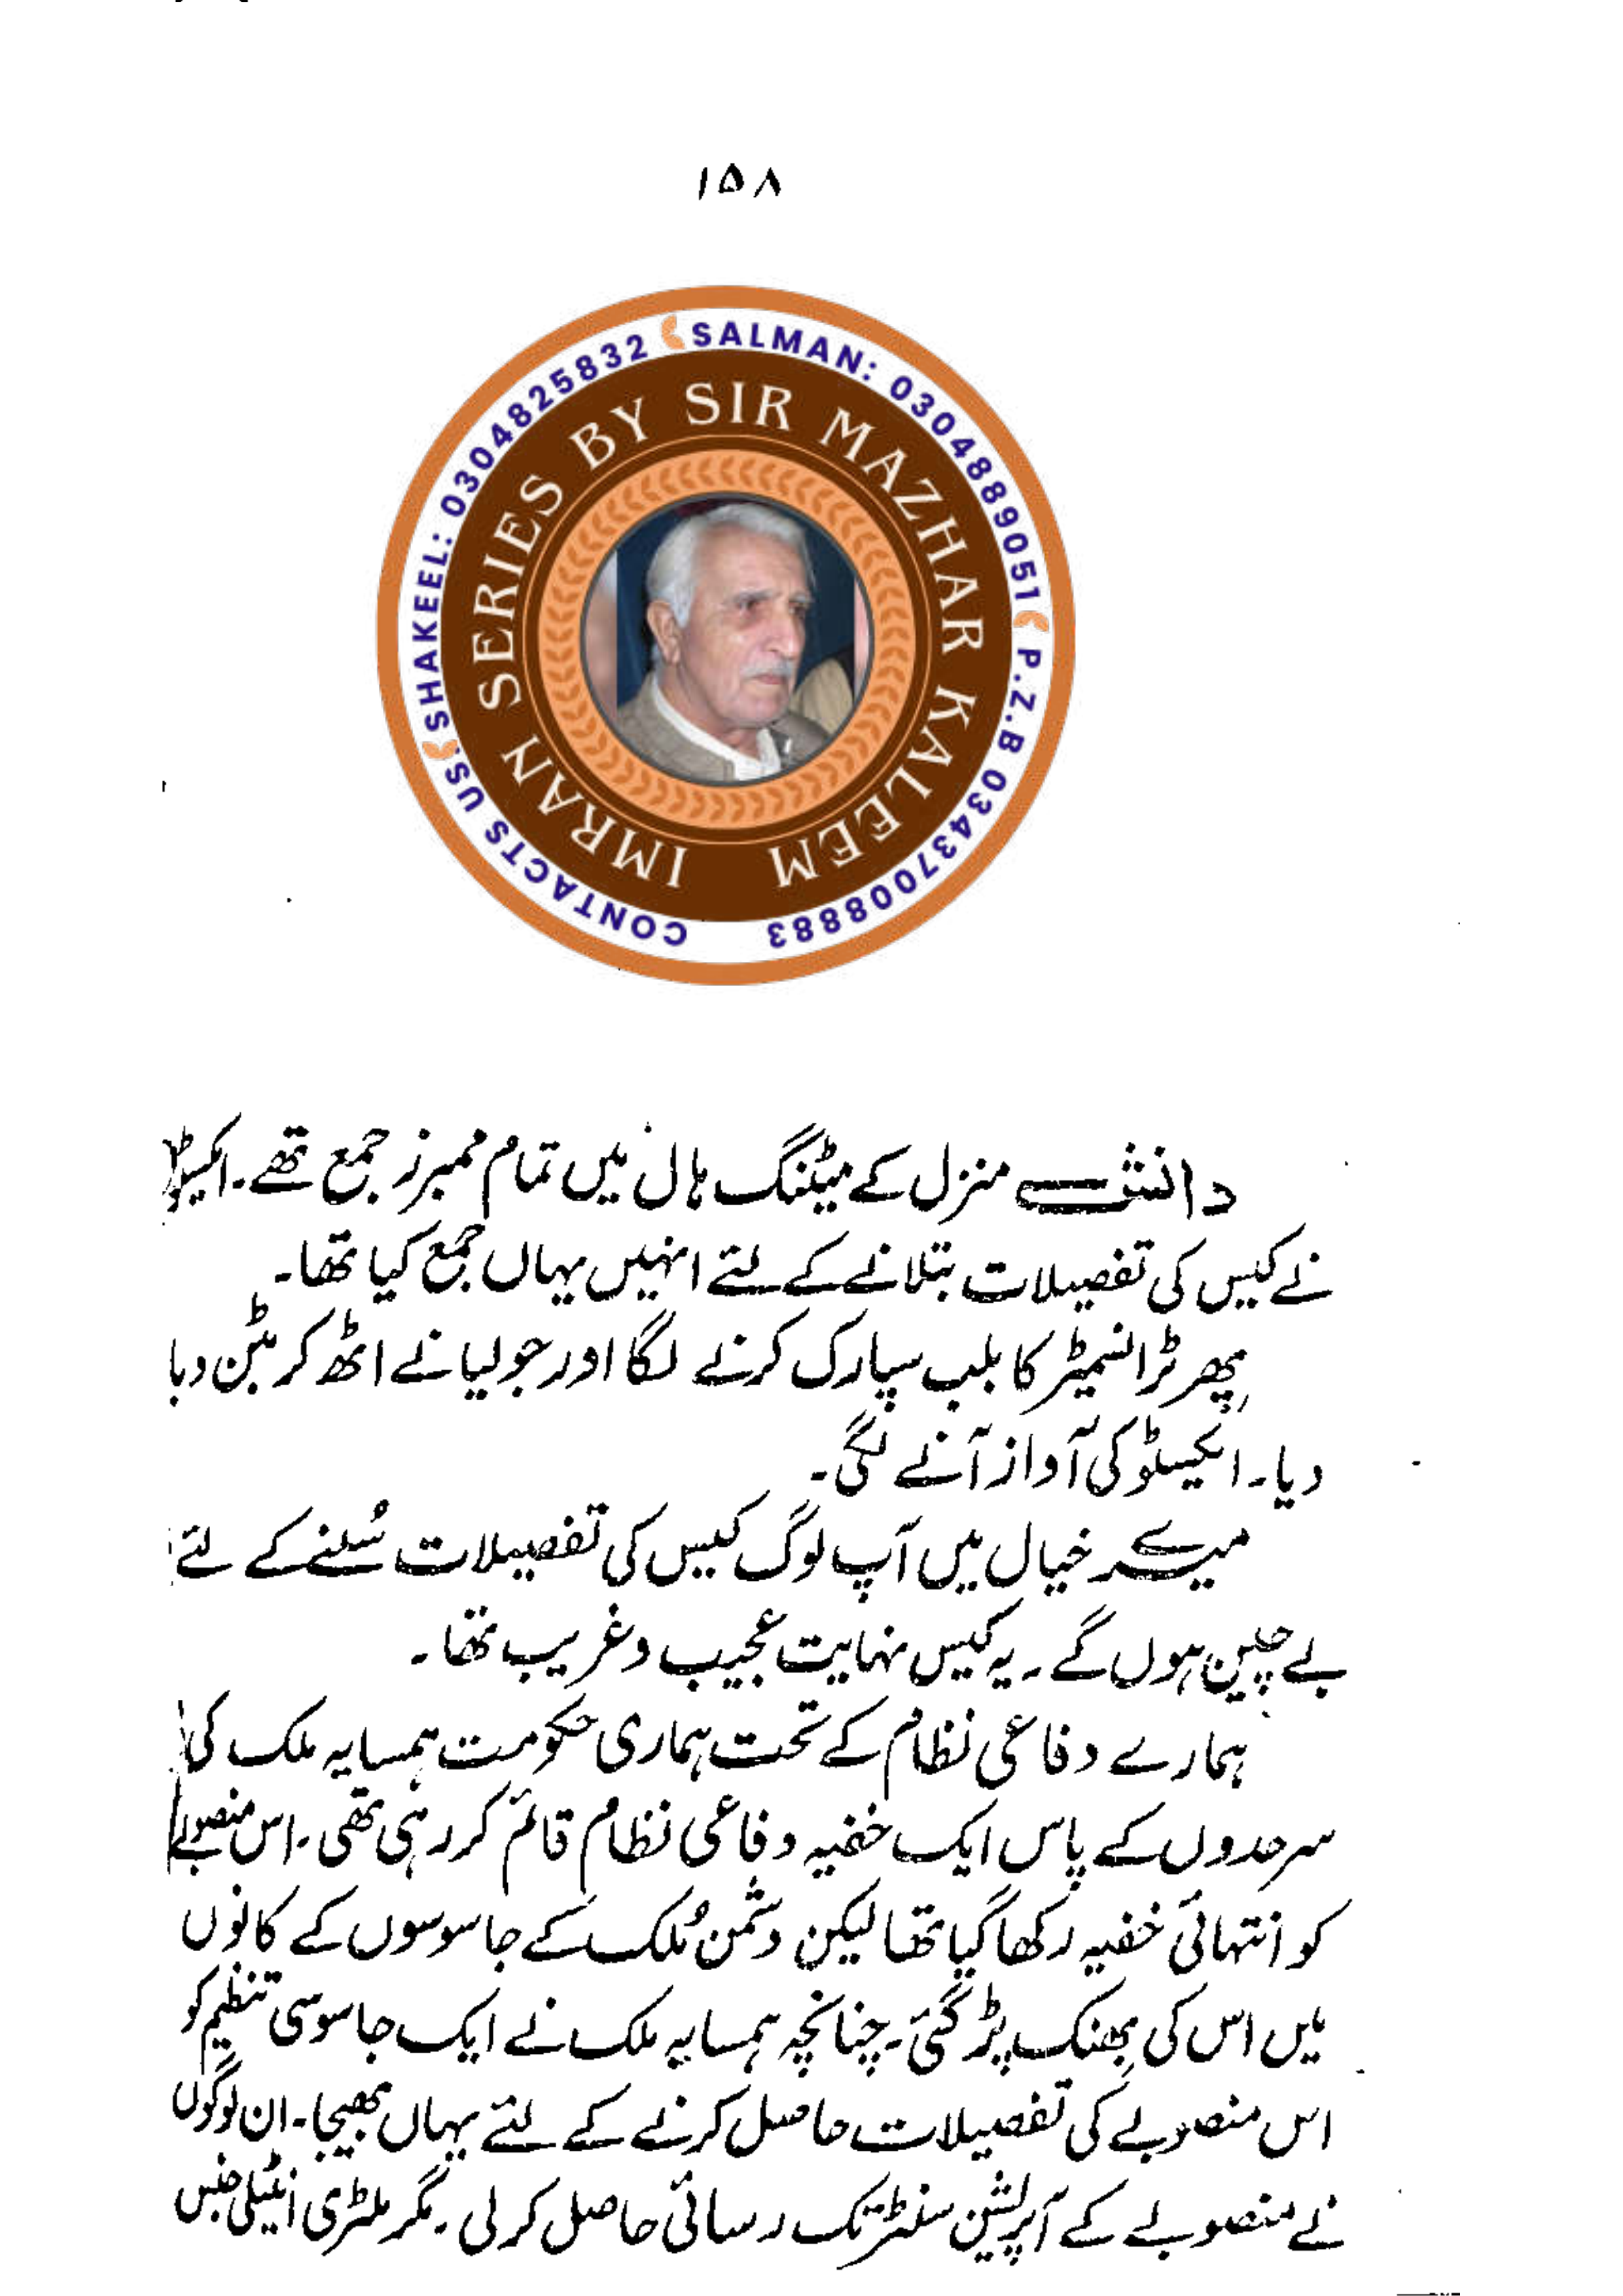 ۱۵۸
CONTACTS US: SHAKEEL: 0304825832 SALMAN: 0304889051 P.Z.B 03437008883
IMRAN SERIES BY SIR MAZHAR KALEEM
دانش منزل کے میٹنگ ہال میں تمام ممبرز جمع تھے۔ ایکسٹو
نے کیس کی تفصیلات بتلانے کے لئے انہیں یہاں جمع کیا تھا۔
پھر ٹرانسمیٹر کا بلب سپارک کرنے لگا اور جولیا نے اٹھ کر بٹن دبا
دیا۔ ایکسٹو کی آواز آنے لگی۔
میرے خیال میں آپ لوگ کیس کی تفصیلات سُننے کے لئے
بے چین ہوں گے۔ یہ کیس نہایت عجیب و غریب تھا۔
ہمارے دفاعی نظام کے تحت ہماری حکومت ہمسایہ ملک کی
سرحدوں کے پاس ایک خفیہ دفاعی نظام قائم کر رہی تھی۔ اس منصوبے
کو انتہائی خفیہ رکھا گیا تھا لیکن دشمن مُلک کے جاسوسوں کے کانوں
میں اس کی بھنک پڑ گئی۔ چنانچہ ہمسایہ ملک نے ایک جاسوسی تنظیم کو
اس منصوبے کی تفصیلات حاصل کرنے کے لئے یہاں بھیجا۔ ان لوگوں
نے منصوبے کے آپریشن سنٹر تک رسائی حاصل کر لی۔ مگر ملٹری انٹیلی جنس